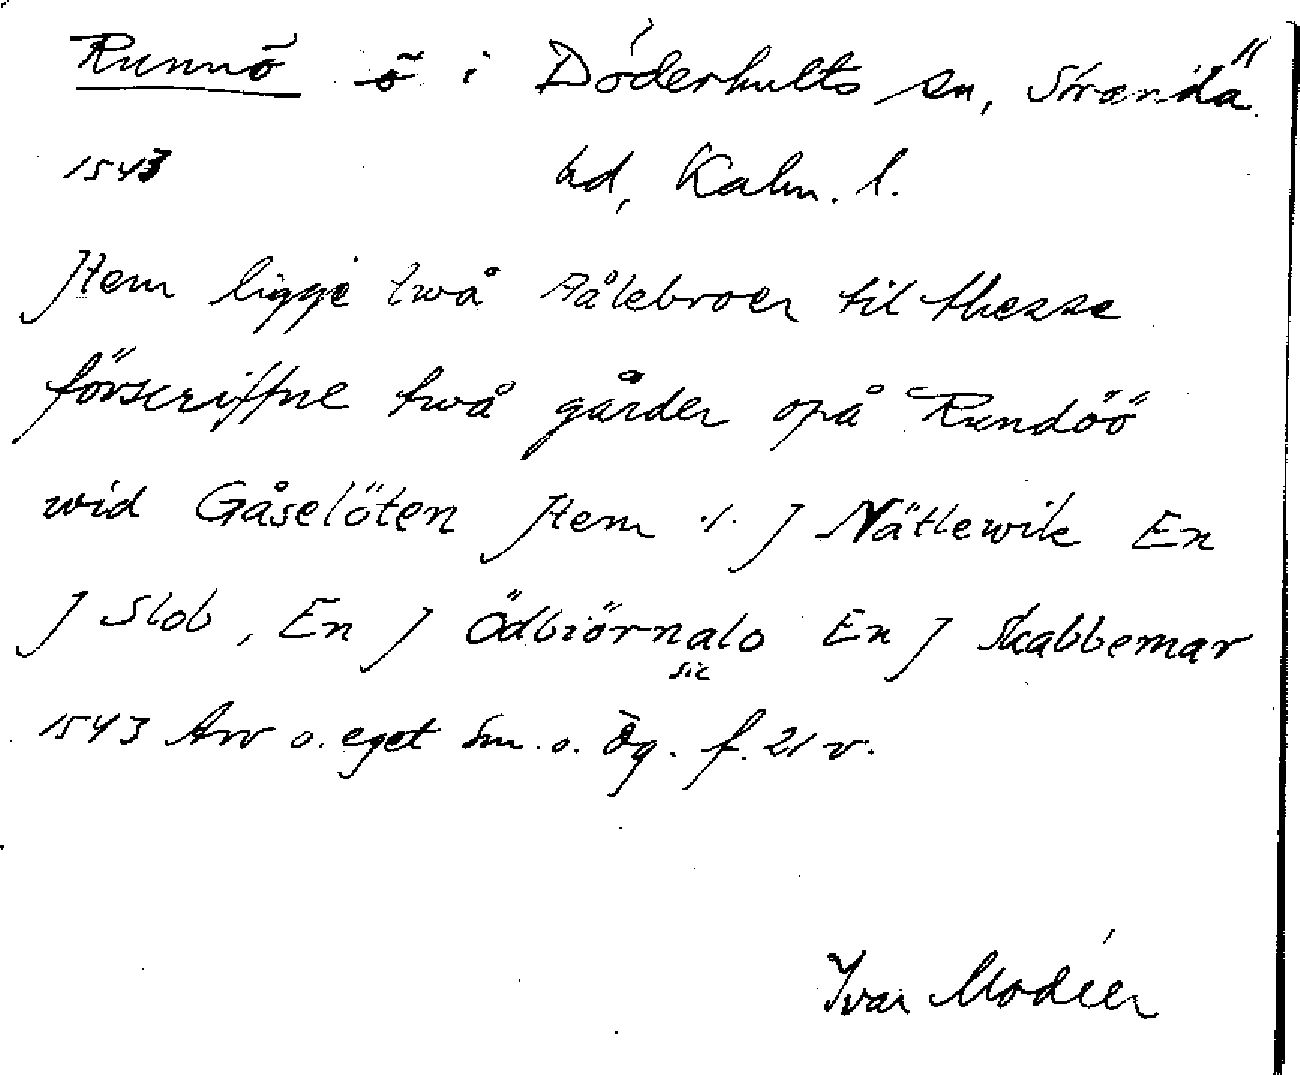 Runnö ö i Döderhults sn, Stranda
1543 hd, Kalm. l.
Jtem ligge twå Aålebroer til thesse
förscriffne twå gårder opå Rundöö
wid Gåselöten Jtem ·/· J Nätlewik En
J Slob, En J Ödbiörnalo En J Skabbemar
sic
1543 Arv o. eget Sm. o. Ög. f. 21 v.
Ivar Modéer